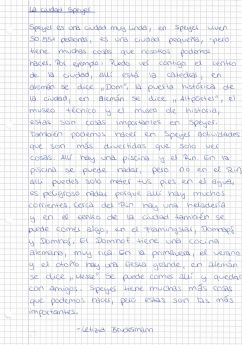 La ciudad Speyer
Speyer es una ciudad muy linda, en Speyer viven
50.551 personas, es una ciudad pequeña, pero
tiene muchas cosas que nosotros podemos
hacer. Por ejemplo: Puedo ir contigo el centro
de la ciudad, allí está la catedral, en
alemán se dice „Dom", la puerta histórica de
la ciudad, en alemán se dice „Altpörtel", el
museo técnico y el museo de historia,
estas son cosas importantes en Speyer.
También podemos hacer en Speyer actividades
que son más divertidas que solo ver
cosas. Allí hay una piscina y el Rin. En la
piscina se puede nadar, pero no en el Rin,
allí puedes solo meter tus pies en el agua,
es peligroso nadar porque allí hay muchos
corrientes. Cerca del Rin hay una heladería
y en el centro de la ciudad también se
puede comer algo, en el Flamingstar, Domnapf
y Domhof. El Domhof tiene una cocina
alemana, muy rica. En la primavera, el verano
y el otoño hay una fiesta grande, en alemán
se dice „Messe". Se puede comer allí y quedar
con amigos. Speyer tiene muchas más cosas
que podemos hacer, pero estas son las más
importantes.
-Letizia